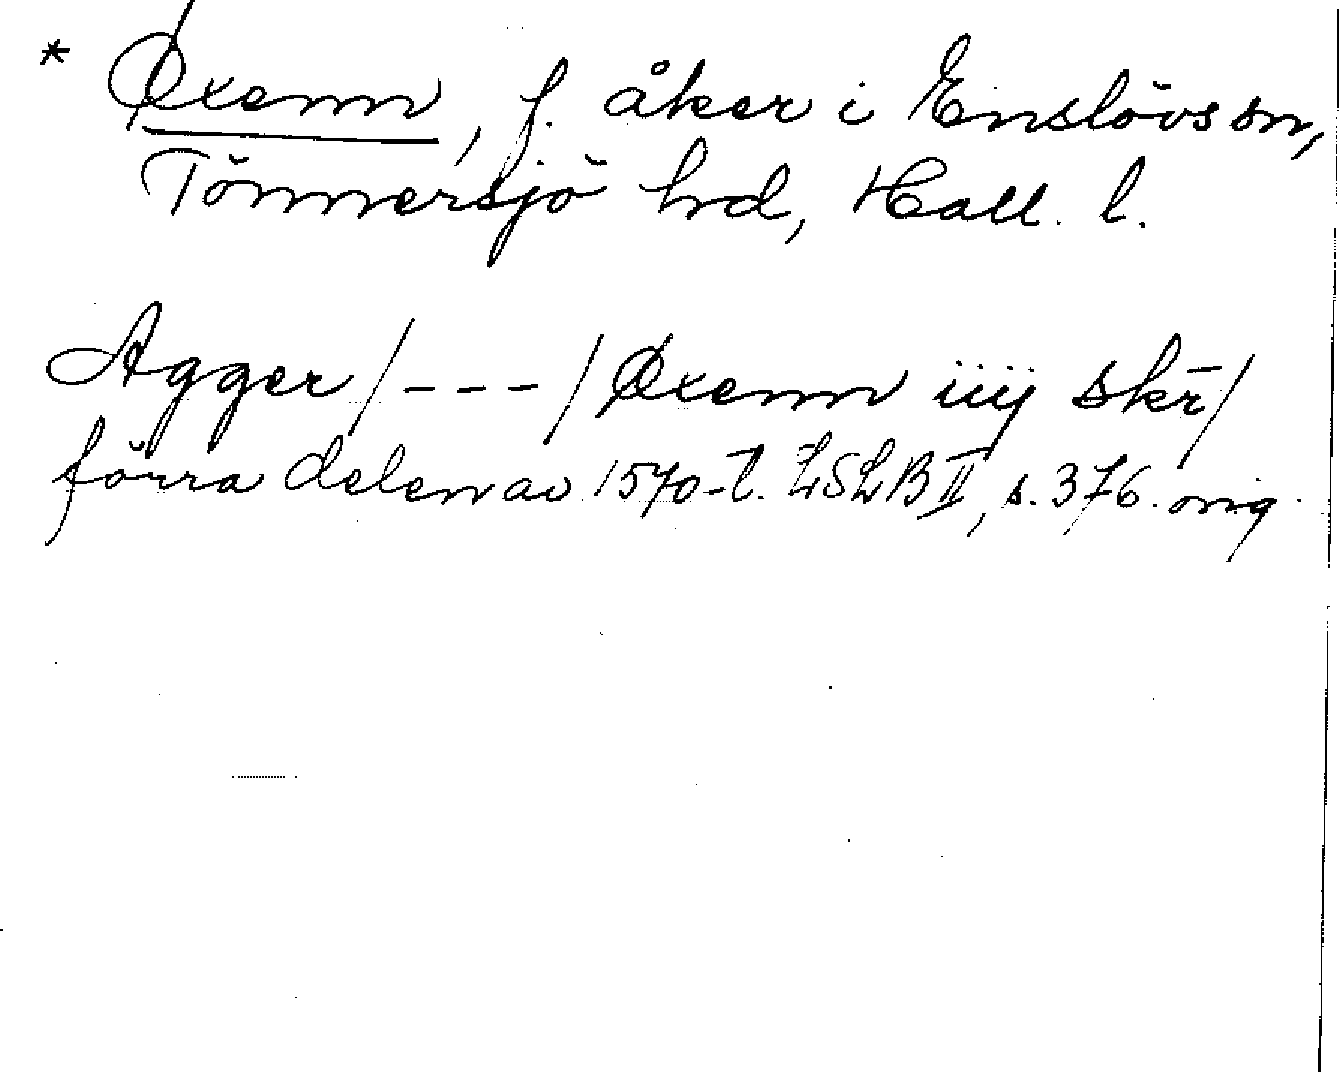 * Øxenn, f. åker i Enslövs sn,
Tönnersjö hd, Hall. l.
Agger / - - - / Øxenn iiij skr̄ /
förra delen av 1570-t. LSLB II, s. 376. orig.